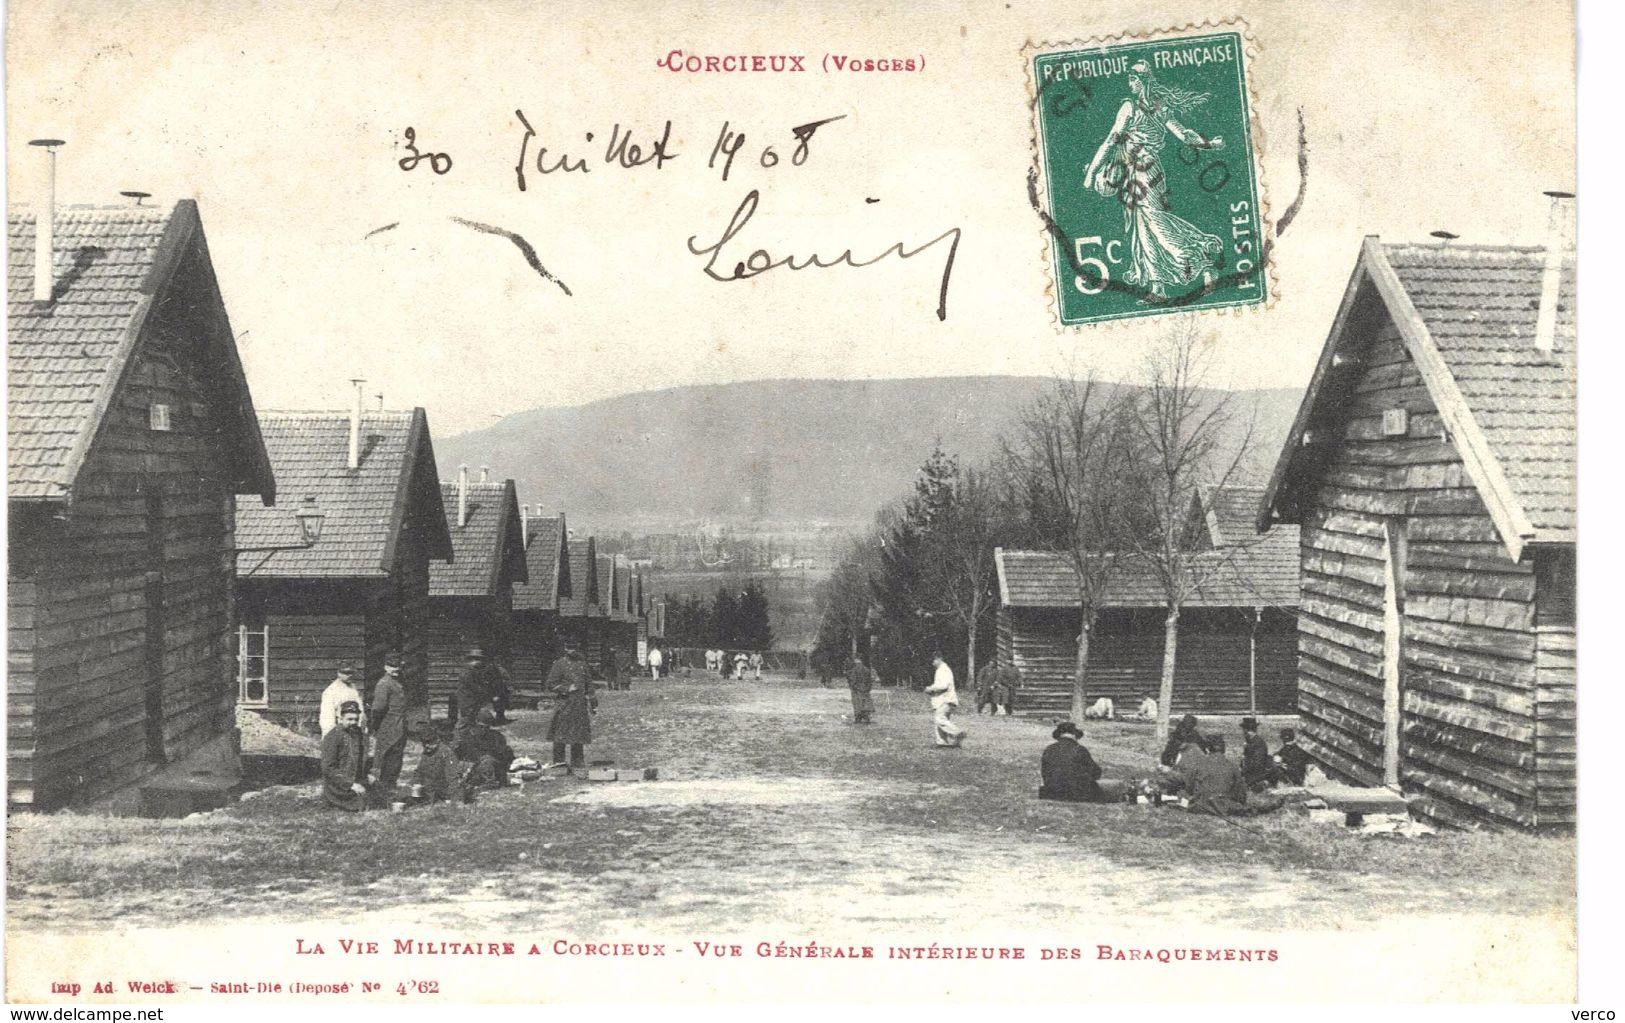 CORCIEUX (VOSGES)
RÉPUBLIQUE FRANÇAISE
30 Juillet 1908
30
08
5c
POSTES
LA VIE MILITAIRE A CORCIEUX - VUE GÉNÉRALE INTÉRIEURE DES BARAQUEMENTS
Imp Ad. Weick. — Saint-Dié (Déposé) No 4262
delcampe.net
verco